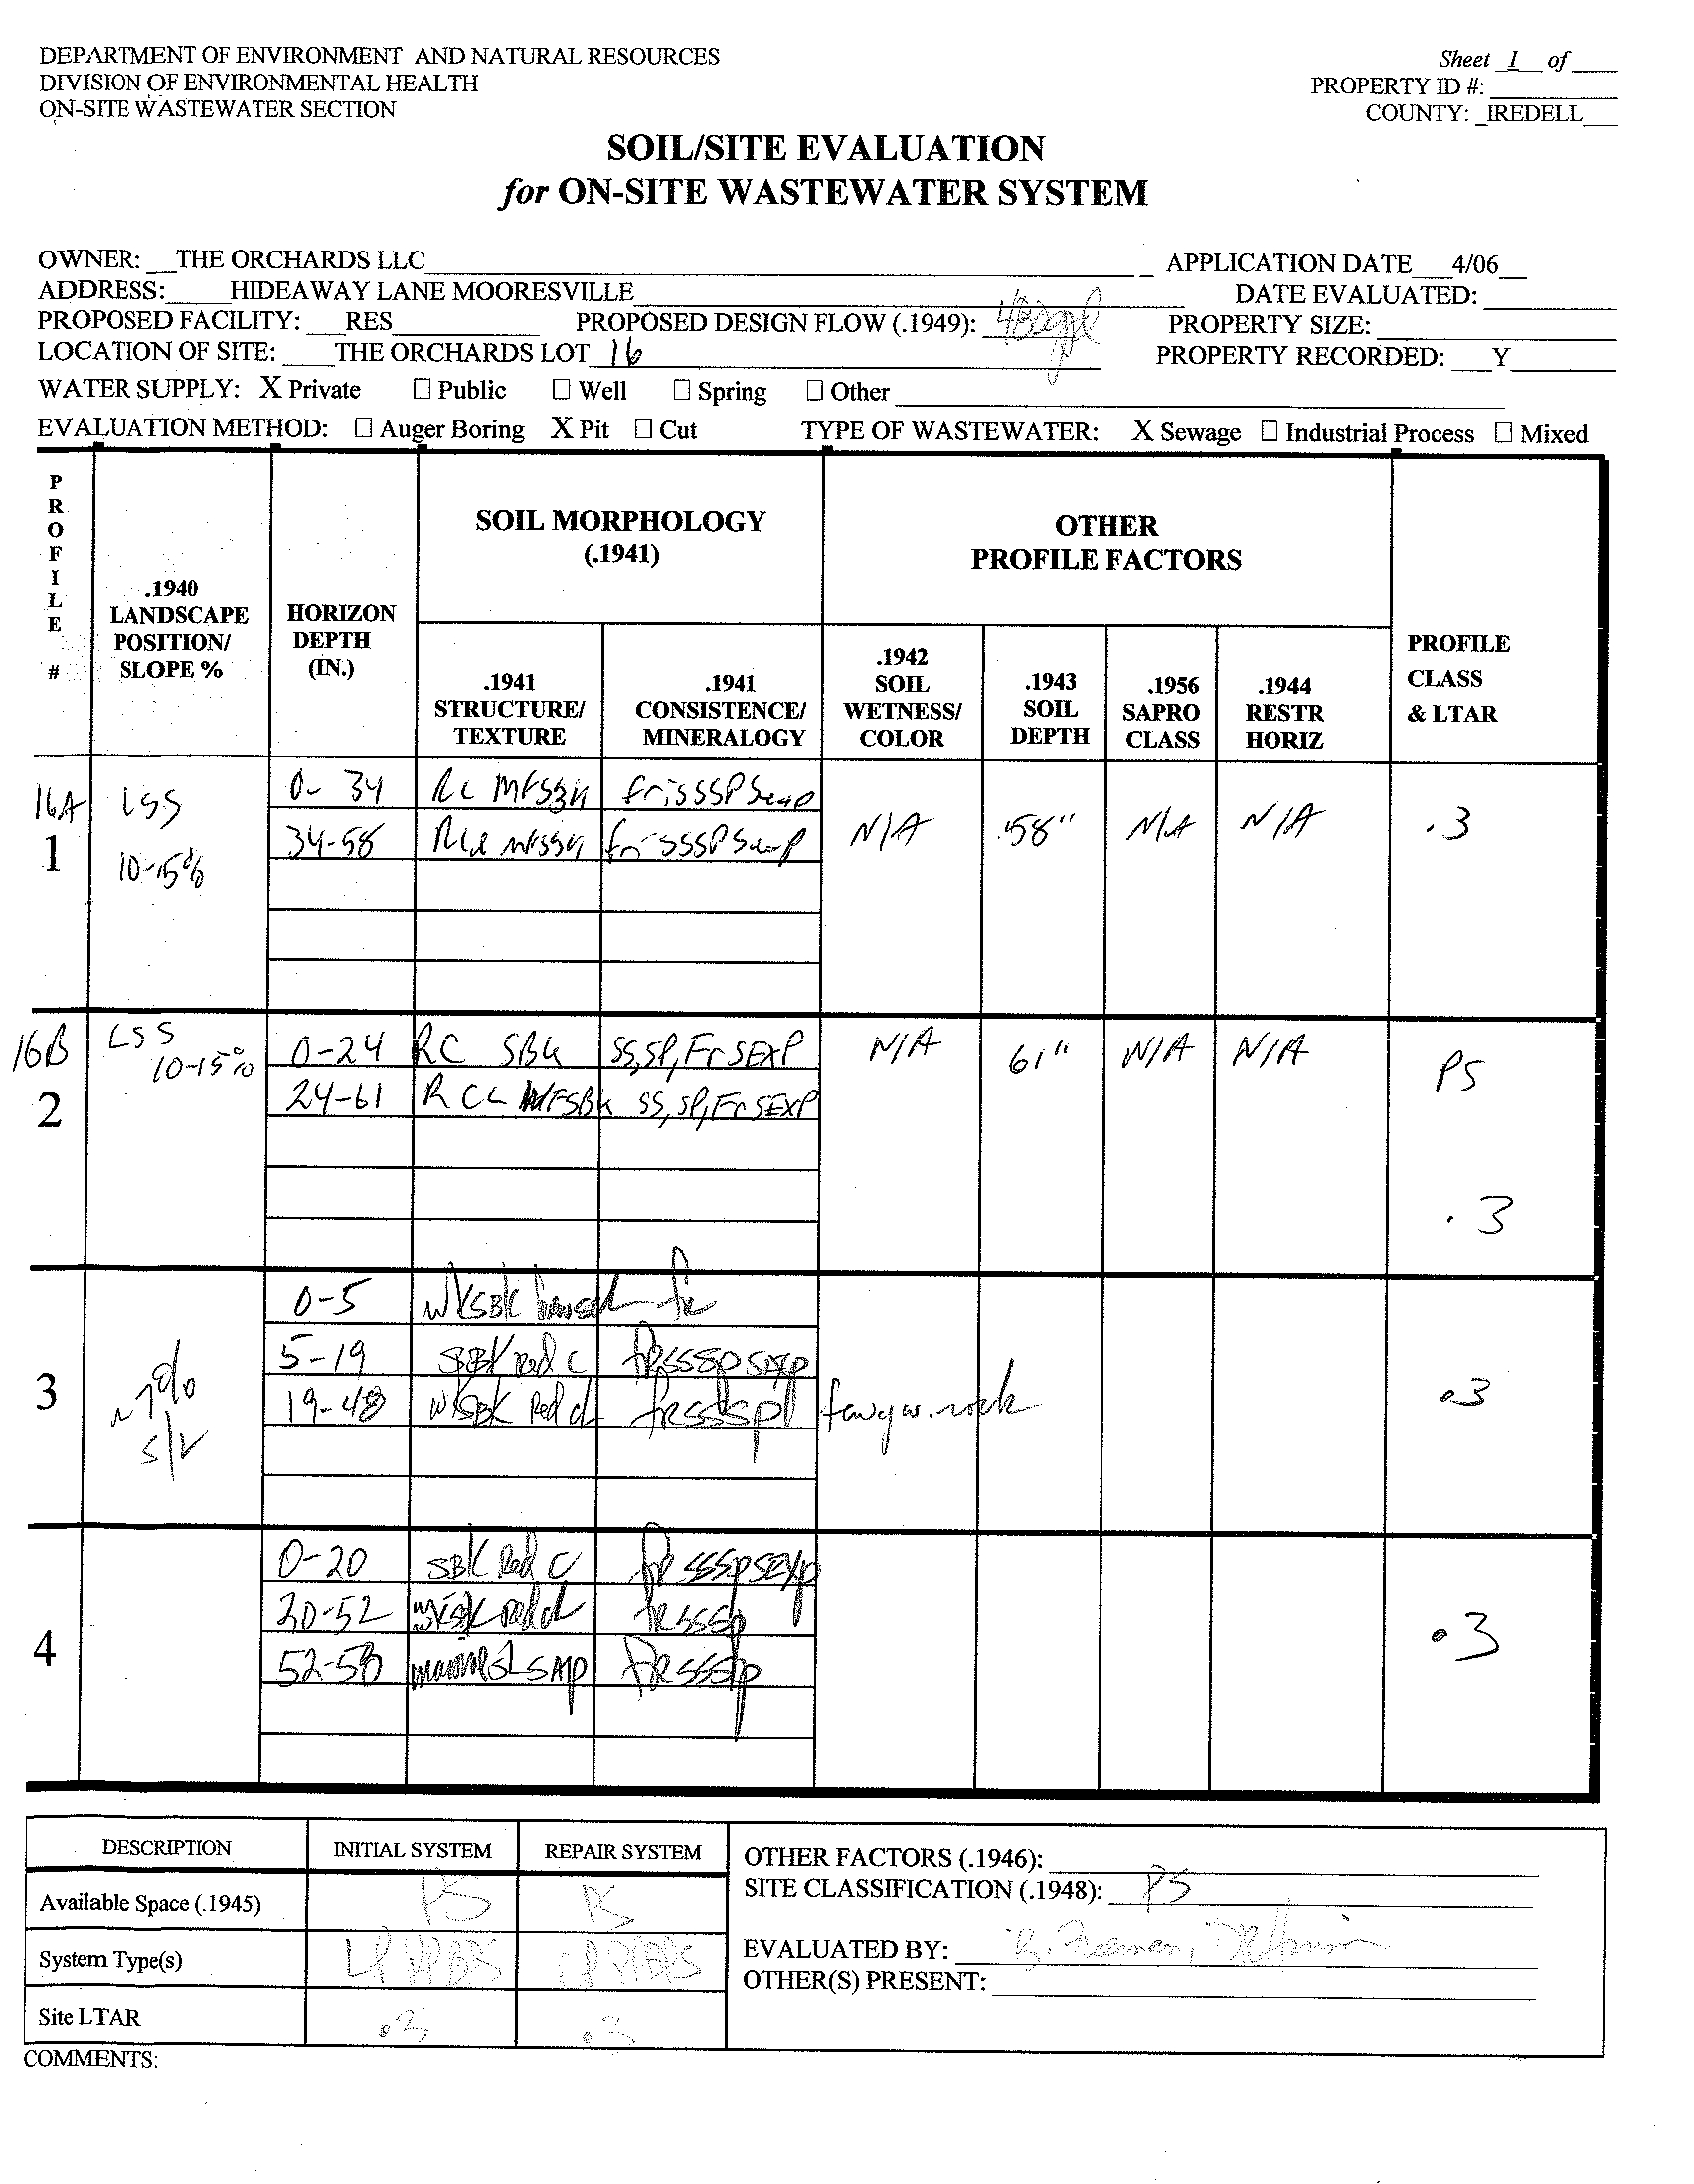 DEPARTMENT OF ENVIRONMENT AND NATURAL RESOURCES
DIVISION OF ENVIRONMENTAL HEALTH
ON-SITE WASTEWATER SECTION
Sheet 1 of
PROPERTY ID #:
COUNTY: IREDELL
SOIL/SITE EVALUATION
for ON-SITE WASTEWATER SYSTEM
OWNER: THE ORCHARDS LLC APPLICATION DATE 4/06
ADDRESS: HIDEAWAY LANE MOORESVILLE DATE EVALUATED:
PROPOSED FACILITY: RES PROPOSED DESIGN FLOW (.1949): PROPERTY SIZE:
LOCATION OF SITE: THE ORCHARDS LOT 16 PROPERTY RECORDED: Y
WATER SUPPLY: X Private ☐ Public ☐ Well ☐ Spring ☐ Other
EVALUATION METHOD: ☐ Auger Boring X Pit ☐ Cut TYPE OF WASTEWATER: X Sewage ☐ Industrial Process ☐ Mixed
PROFILE #
.1940 LANDSCAPE POSITION/ SLOPE %
HORIZON DEPTH (IN.)
SOIL MORPHOLOGY (.1941)
.1941 STRUCTURE/ TEXTURE
.1941 CONSISTENCE/ MINERALOGY
OTHER PROFILE FACTORS
.1942 SOIL WETNESS/ COLOR
.1943 SOIL DEPTH
.1956 SAPRO CLASS
.1944 RESTR HORIZ
PROFILE CLASS & LTAR
16A 1 LSS 10-15%
0-34
34-58
N/A 58" N/A N/A .3
16B 2 LSS 10-15%
0-24 RC SBK SS,SP,Fr SEXP
24-61 RCL WFSBK SS,SP,Fr SEXP
N/A 61" N/A N/A PS .3
3
0-5 WKSBK fr
5-19 SBK Red C frsssp sexp
19-48 WKSBK Red cl frsssp
.3
4
0-20 SBK Red C frsssp sexp
20-52 WKSBK Red cl frsssp
52-58 SAP frsssp
.3
DESCRIPTION INITIAL SYSTEM REPAIR SYSTEM
Available Space (.1945) PS PS
System Type(s)
Site LTAR .3 .3
OTHER FACTORS (.1946):
SITE CLASSIFICATION (.1948): PS
EVALUATED BY:
OTHER(S) PRESENT:
COMMENTS: